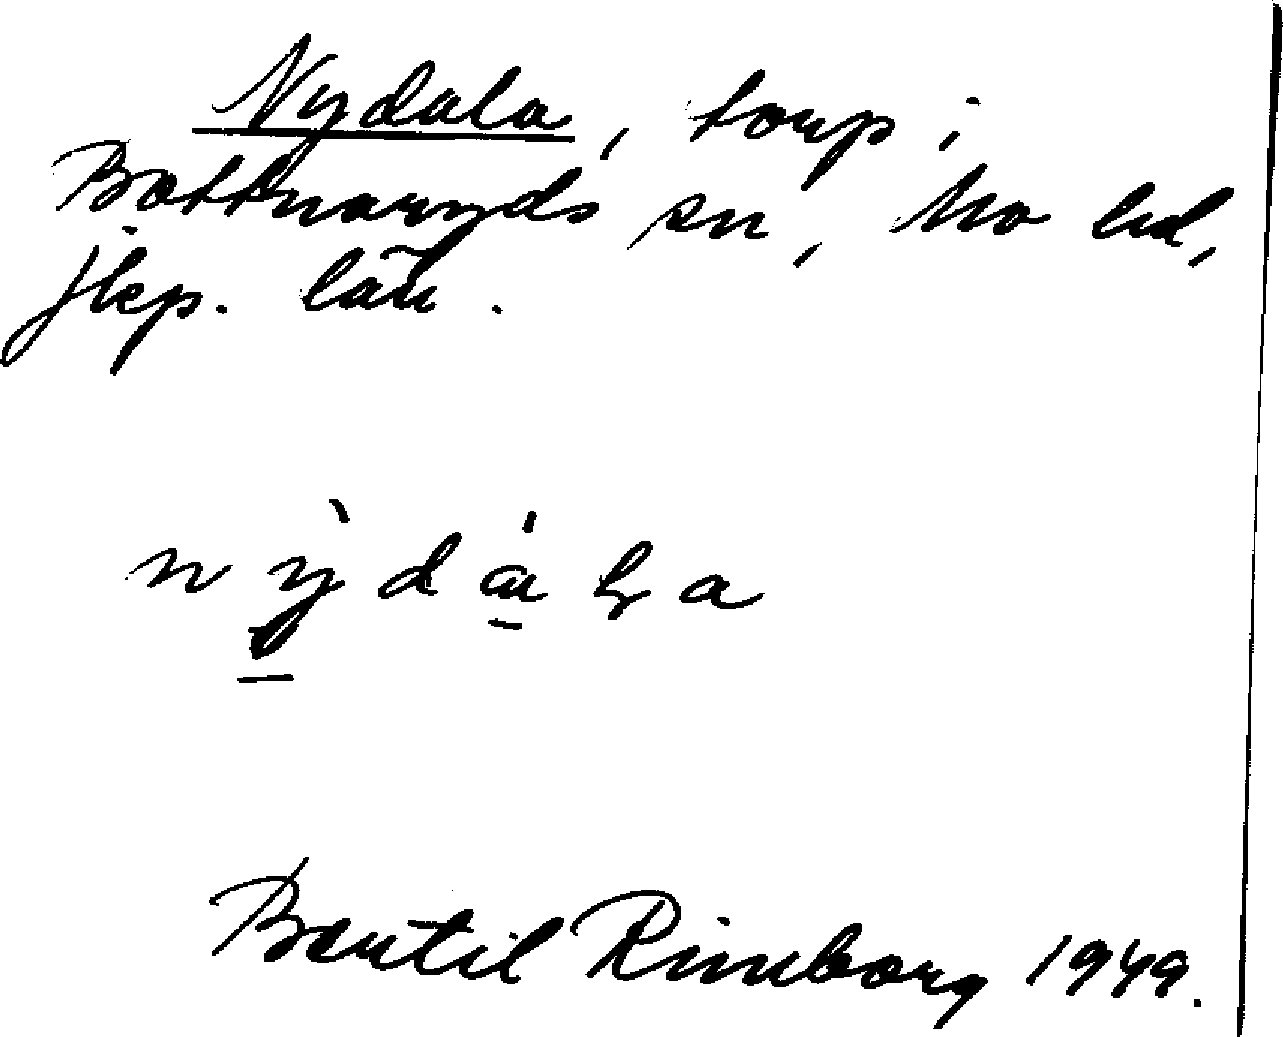 Nydala, torp i
Bottnaryds sn, Mo hd,
Jkp. län.
Bertil Rimborg 1949.